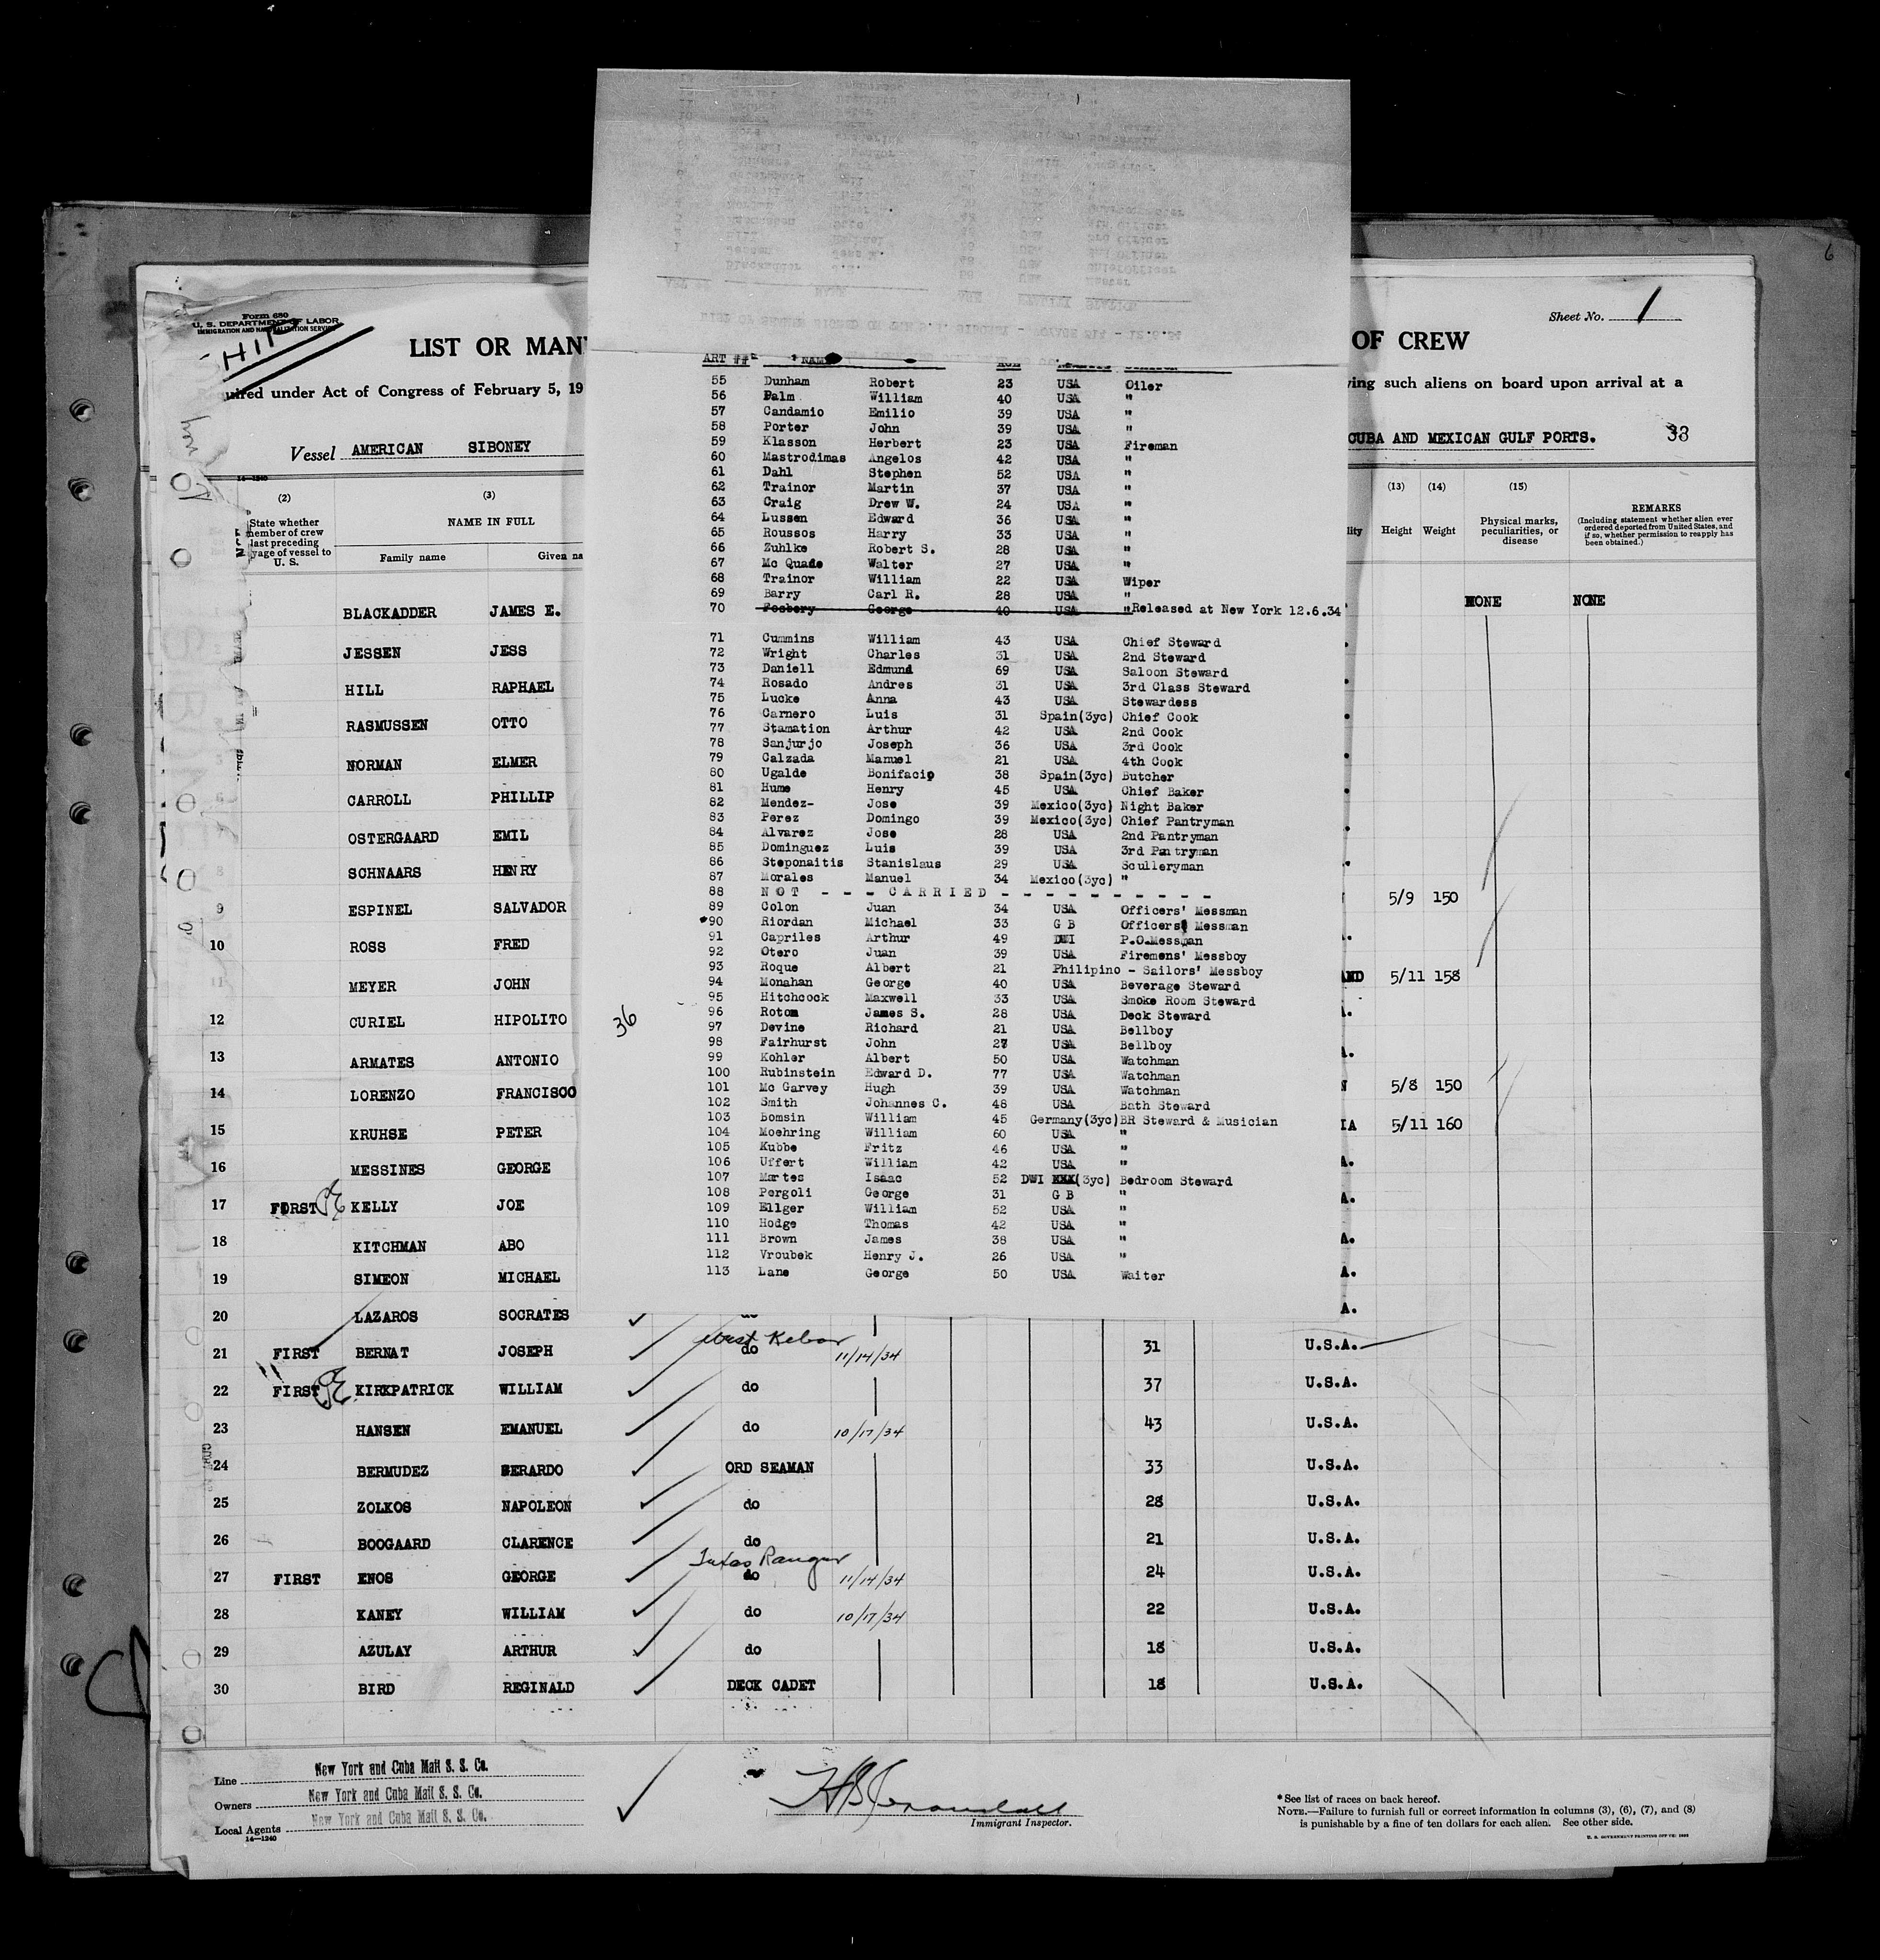 6
Form 680
U. S. DEPARTMENT OF LABOR
IMMIGRATION AND NATURALIZATION SERVICE
Sheet No. 1
LIST OR MAN
OF CREW
uired under Act of Congress of February 5, 19
ving such aliens on board upon arrival at a
Vessel AMERICAN SIBONEY
CUBA AND MEXICAN GULF PORTS. 33
ART ## NAME
55 Dunham Robert 23 USA Oiler
56 Palm William 40 USA "
57 Candamio Emilio 39 USA "
58 Porter John 39 USA "
59 Klasson Herbert 23 USA Fireman
60 Mastrodimas Angelos 42 USA "
61 Dahl Stephen 52 USA "
62 Trainor Martin 37 USA "
63 Craig Drew W. 24 USA "
64 Lussen Edward 36 USA "
65 Roussos Harry 33 USA "
66 Zuhlke Robert S. 28 USA "
67 Mc Quade Walter 27 USA "
68 Trainor William 22 USA Wiper
69 Barry Carl R. 28 USA "
70 Fosbery George 40 USA "Released at New York 12.6.34
71 Cummins William 43 USA Chief Steward
72 Wright Charles 31 USA 2nd Steward
73 Daniell Edmund 69 USA Saloon Steward
74 Rosado Andres 31 USA 3rd Class Steward
75 Lucke Anna 43 USA Stewardess
76 Carnero Luis 31 Spain(3yc) Chief Cook
77 Stamation Arthur 42 USA 2nd Cook
78 Sanjurjo Joseph 36 USA 3rd Cook
79 Calzada Manuel 21 USA 4th Cook
80 Ugalde Bonifacip 38 Spain(3yc) Butcher
81 Hume Henry 45 USA Chief Baker
82 Mendez- Jose 39 Mexico(3yc) Night Baker
83 Perez Domingo 39 Mexico(3yc) Chief Pantryman
84 Alvarez Jose 28 USA 2nd Pantryman
85 Dominguez Luis 39 USA 3rd Pantryman
86 Steponaitis Stanislaus 29 USA Sculleryman
87 Morales Manuel 34 Mexico(3yc) "
88 N O T - - - C A R R I E D - - - - - - - - - - -
89 Colon Juan 34 USA Officers' Messman
90 Riordan Michael 33 G B Officers' Messman
91 Capriles Arthur 49 DWI P.O.Messman
92 Otero Juan 39 USA Firemens' Messboy
93 Roque Albert 21 Philipino - Sailors' Messboy
94 Monahan George 40 USA Beverage Steward
95 Hitchcock Maxwell 33 USA Smoke Room Steward
96 Rotom James S. 28 USA Deck Steward
97 Devine Richard 21 USA Bellboy
98 Fairhurst John 27 USA Bellboy
99 Kohler Albert 50 USA Watchman
100 Rubinstein Edward D. 77 USA Watchman
101 Mc Garvey Hugh 39 USA Watchman
102 Smith Johannes C. 48 USA Bath Steward
103 Bomsin William 45 Germany(3yc)BR Steward & Musician
104 Moehring William 60 USA "
105 Kubbe Fritz 46 USA "
106 Uffert William 42 USA "
107 Martes Isaac 52 DWI XXX(3yc) Bedroom Steward
108 Pergoli George 31 G B "
109 Ellger William 52 USA "
110 Hodge Thomas 42 USA "
111 Brown James 38 USA "
112 Vroubek Henry J. 26 USA "
113 Lane George 50 USA Waiter
36
(2) (3) (13) (14) (15)
State whether member of crew last preceding voyage of vessel to U. S.
NAME IN FULL
Family name Given na
lity Height Weight
Physical marks, peculiarities, or disease
REMARKS
(Including statement whether alien ever ordered deported from United States, and if so, whether permission to reapply has been obtained.)
BLACKADDER JAMES E. NONE NONE
JESSEN JESS
HILL RAPHAEL
RASMUSSEN OTTO
NORMAN ELMER
CARROLL PHILLIP
OSTERGAARD EMIL
8 SCHNAARS HENRY
9 ESPINEL SALVADOR 5/9 150
10 ROSS FRED A.
11 MEYER JOHN AND 5/11 158
12 CURIEL HIPOLITO A.
13 ARMATES ANTONIO A.
14 LORENZO FRANCISCO N 5/8 150
15 KRUHSE PETER IA 5/11 160
16 MESSINES GEORGE A.
17 FIRST KELLY JOE A.
18 KITCHMAN ABO A.
19 SIMEON MICHAEL A.
20 LAZAROS SOCRATES do A.
West Kebar
21 FIRST BERNAT JOSEPH do 11/14/34 31 U.S.A.
22 FIRST KIRKPATRICK WILLIAM do 37 U.S.A.
23 HANSEN EMANUEL do 10/17/34 43 U.S.A.
24 BERMUDEZ GERARDO ORD SEAMAN 33 U.S.A.
25 ZOLKOS NAPOLEON do 28 U.S.A.
26 BOOGAARD CLARENCE do 21 U.S.A.
Texas Ranger
27 FIRST ENOS GEORGE do 11/14/34 24 U.S.A.
28 KANEY WILLIAM do 10/17/34 22 U.S.A.
29 AZULAY ARTHUR do 18 U.S.A.
30 BIRD REGINALD DECK CADET 18 U.S.A.
Line New York and Cuba Mail S. S. Co.
Owners New York and Cuba Mail S. S. Co.
Local Agents New York and Cuba Mail S. S. Co.
14—1240
Immigrant Inspector.
*See list of races on back hereof.
NOTE.—Failure to furnish full or correct information in columns (3), (6), (7), and (8)
is punishable by a fine of ten dollars for each alien. See other side.